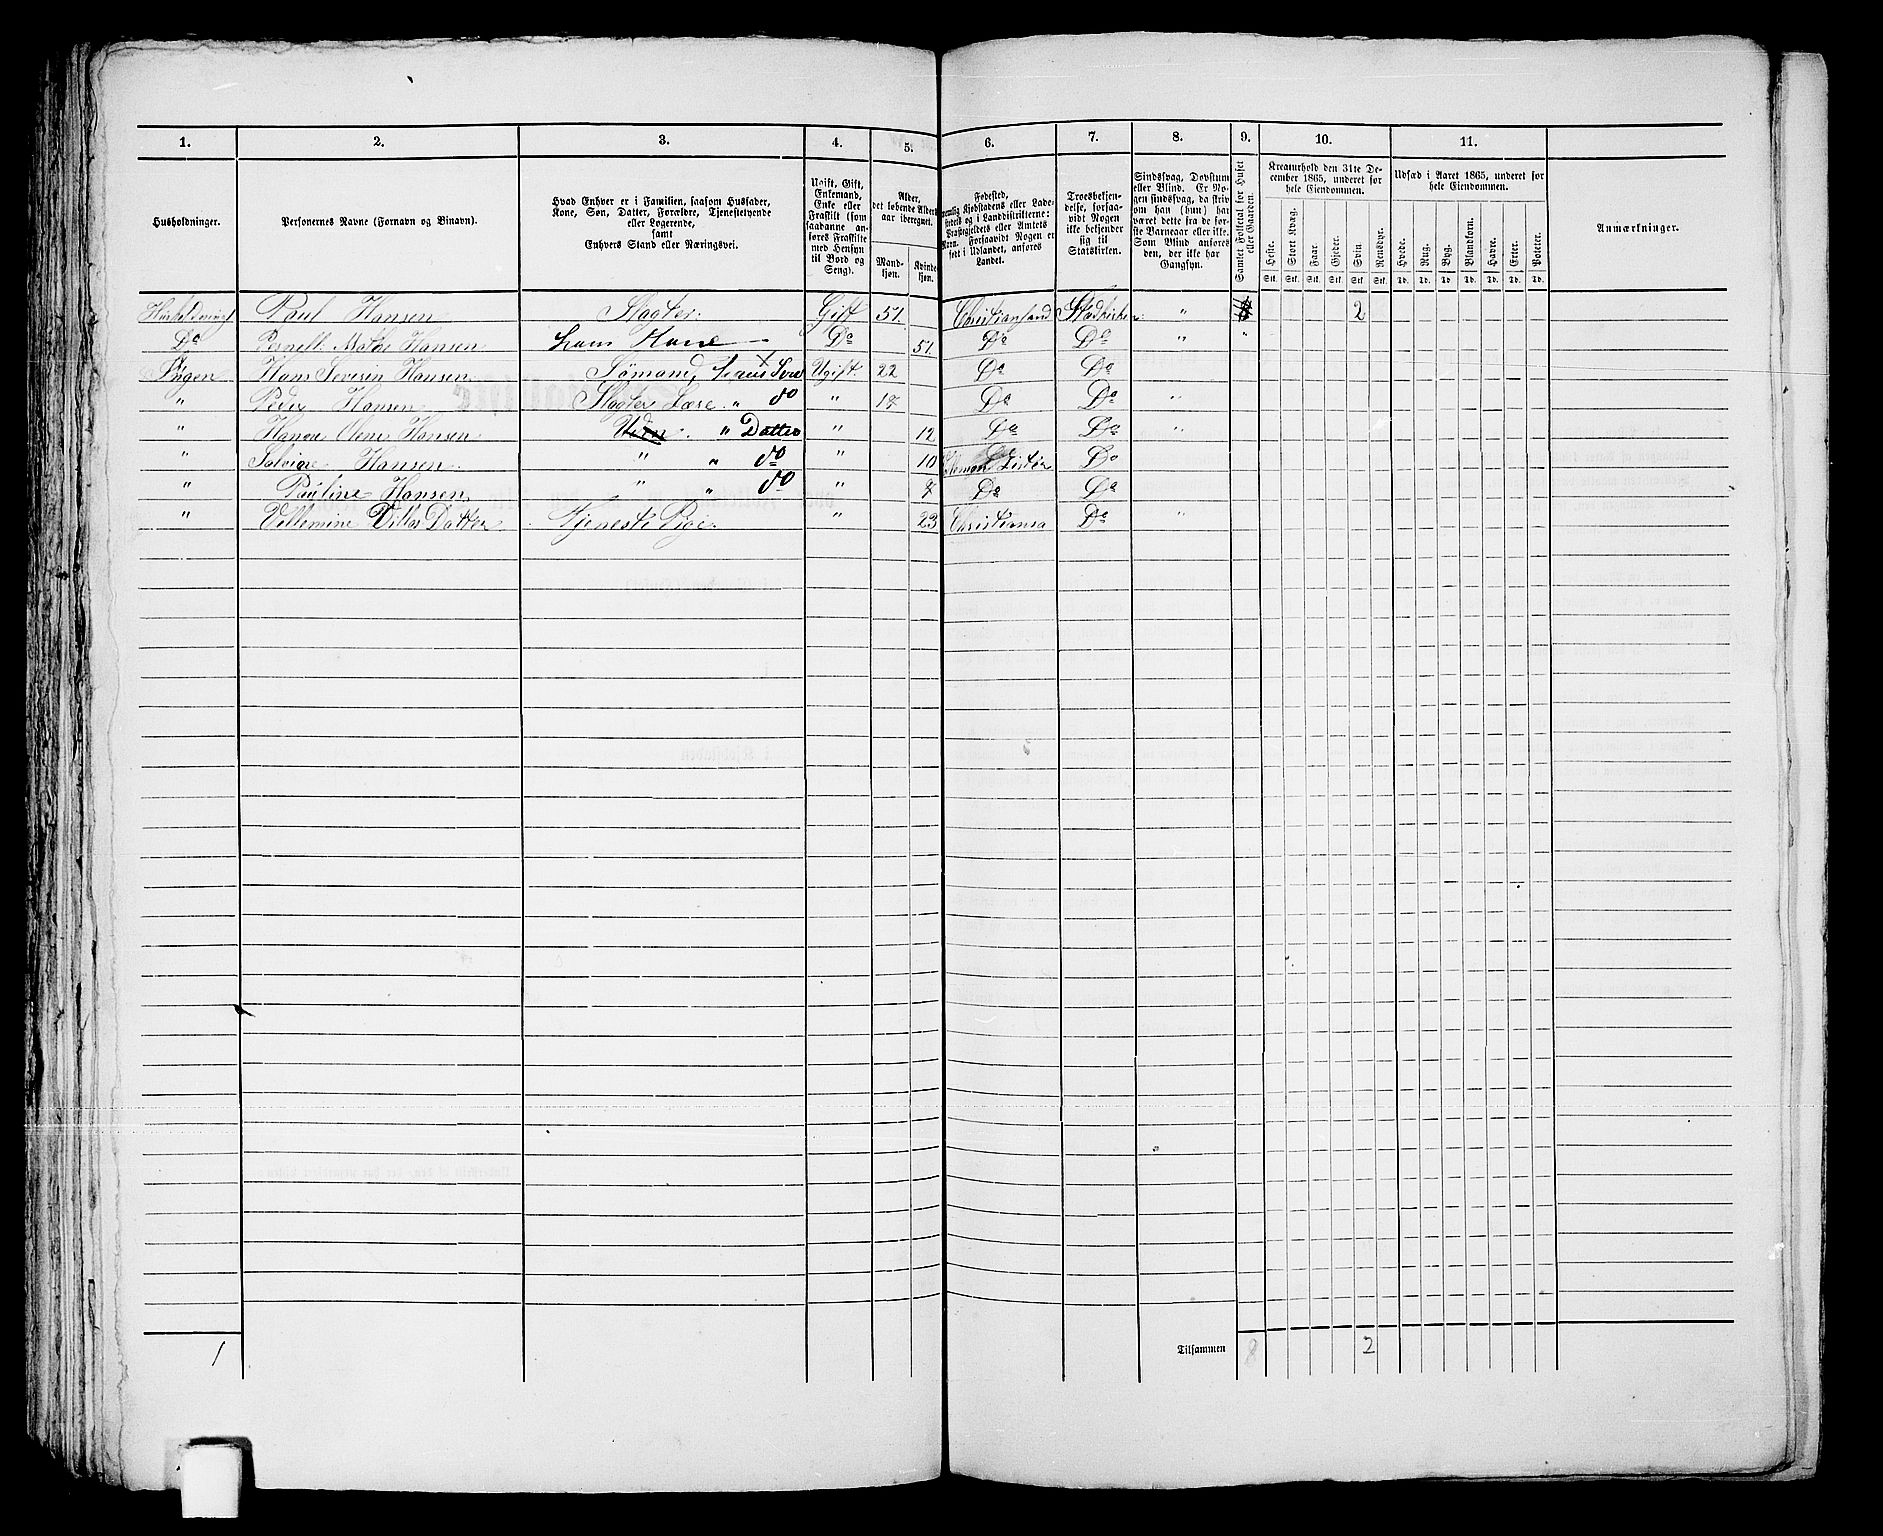 1. 2. 3. 4. 5. 6. 7. 8. 9. 10. 11.
Husholdninger.
Personernes Navne (Fornavn og Binavn).
Hvad Enhver er i Familien, saasom Husfader,
Kone, Søn, Datter, Forældre, Tjenestetyende
eller Logerende,
samt
Enhvers Stand eller Næringsvei.
Ugift, Gift,
Enkemand,
Enke eller
Fraskilt (som
saadanne an-
føres Fraskilte
med Hensyn
til Bord og
Seng).
Alder,
det løbende Alders-
aar iberegnet.
Mand-
kjøn.
Kvinde-
kjøn.
Fødested,
nemlig Kjøbstadens eller Lade-
stedets og i Landdistrikterne:
Præstegjeldets eller Amtets
Navn. Forsaavidt Nogen er
født i Udlandet, anføres
Landet.
Troesbekjen-
delse, forsaa-
vidt Nogen
ikke bekjender
sig til
Statskirken.
Sindssvag, Døvstum
eller Blind. Er No-
gen sindssvag, da skriv
om han (hun) har
været dette fra de før-
ste Barneaar eller ikke.
Som Blind anføres
den, der ikke har
Gangsyn.
Samlet Folketal for Huset
eller Gaarden.
Kreaturhold den 31te De-
cember 1865, underet for
hele Eiendommen.
Heste. Stort Kvæg. Faar. Gjeder. Svin. Rensdyr.
Stk. Stk. Stk. Stk. Stk. Stk.
Udsæd i Aaret 1865, underet for
hele Eiendommen.
Hvede. Rug. Byg. Blandkorn. Havre. Erter. Poteter.
Td. Td. Td. Td. Td. Td. Td.
Anmærkninger.
Paul Hansen Slagter. Gift 51. Christiansand Stadkirken " 2
Do Hansen hans Kone Do 51. Do Do " "
Ingen Hans Severin Hansen Sømand, Ugift. 22 Do Do
" Peder Hansen Slagter Lære. " do " Do Do "
" Hanne Oline Hansen " Datter " 12 Do Do "
" Hansen " " do " 10 Do
" Pauline Hansen " " do " Do Do
" Villemine Datter Tjeneste Pige. " 23 Christiansa Do "
1 Tilsammen 8 2